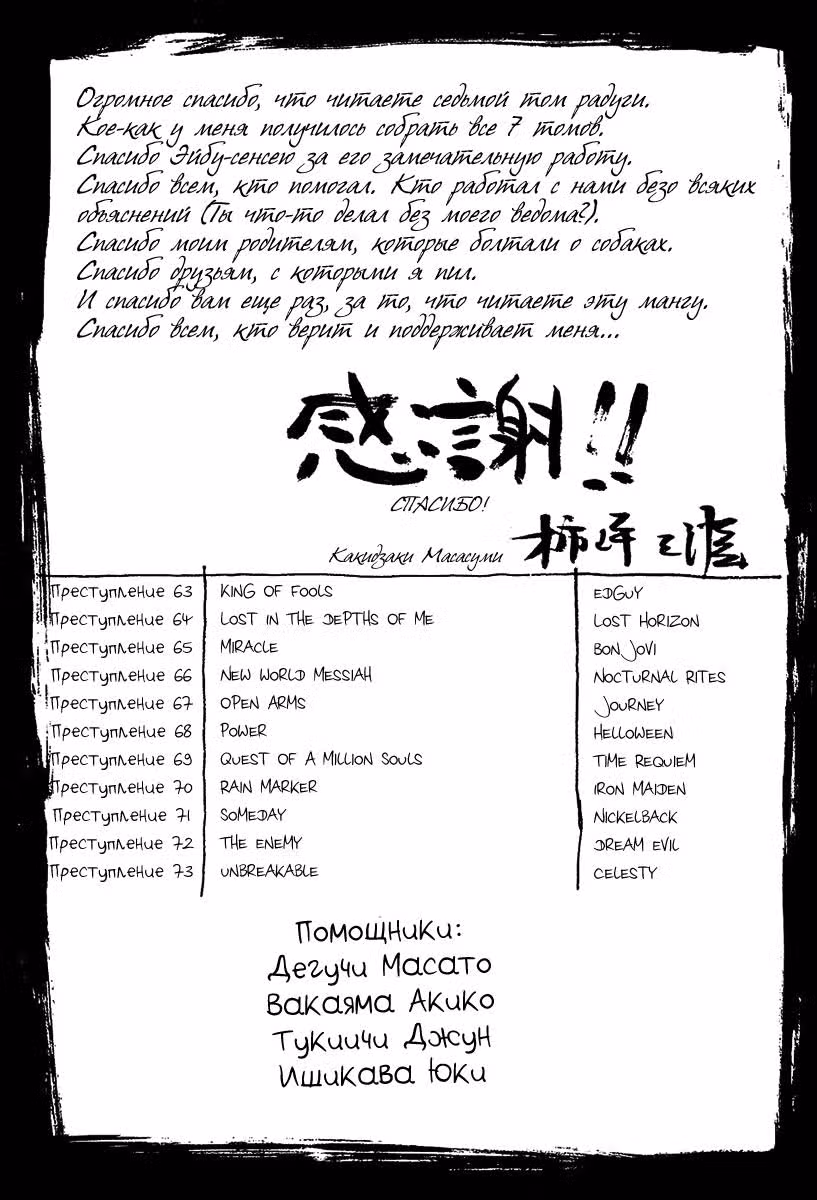 Огромное спасибо, что читаете седьмой том радуги.
Кое-как у меня получилось собрать все 7 томов.
Спасибо Эйбу-сенсею за его замечательную работу.
Спасибо всем, кто помогал. Кто работал с нами безо всяких
объяснений (Ты что-то делал без моего ведома?).
Спасибо моим родителям, которые болтали о собаках.
Спасибо друзьям, с которыми я пил.
И спасибо вам еще раз, за то, что читаете эту мангу.
Спасибо всем, кто верит и поддерживает меня...
感謝!!
СПАСИБО!
Какидзаки Масасуми
Преступление 63 KING OF FOOLS EDGUY
Преступление 64 LOST IN THE DEPTHS OF ME LOST HORIZON
Преступление 65 MIRACLE BON JOVI
Преступление 66 NEW WORLD MESSIAH NOCTURNAL RITES
Преступление 67 OPEN ARMS JOURNEY
Преступление 68 POWER HELLOWEEN
Преступление 69 QUEST OF A MILLION SOULS TIME REQUIEM
Преступление 70 RAIN MARKER IRON MAIDEN
Преступление 71 SOMEDAY NICKELBACK
Преступление 72 THE ENEMY DREAM EVIL
Преступление 73 UNBREAKABLE CELESTY
Помощники:
Дегучи Масато
Вакаяма Акико
Тукиичи Джун
Ишикава Юки